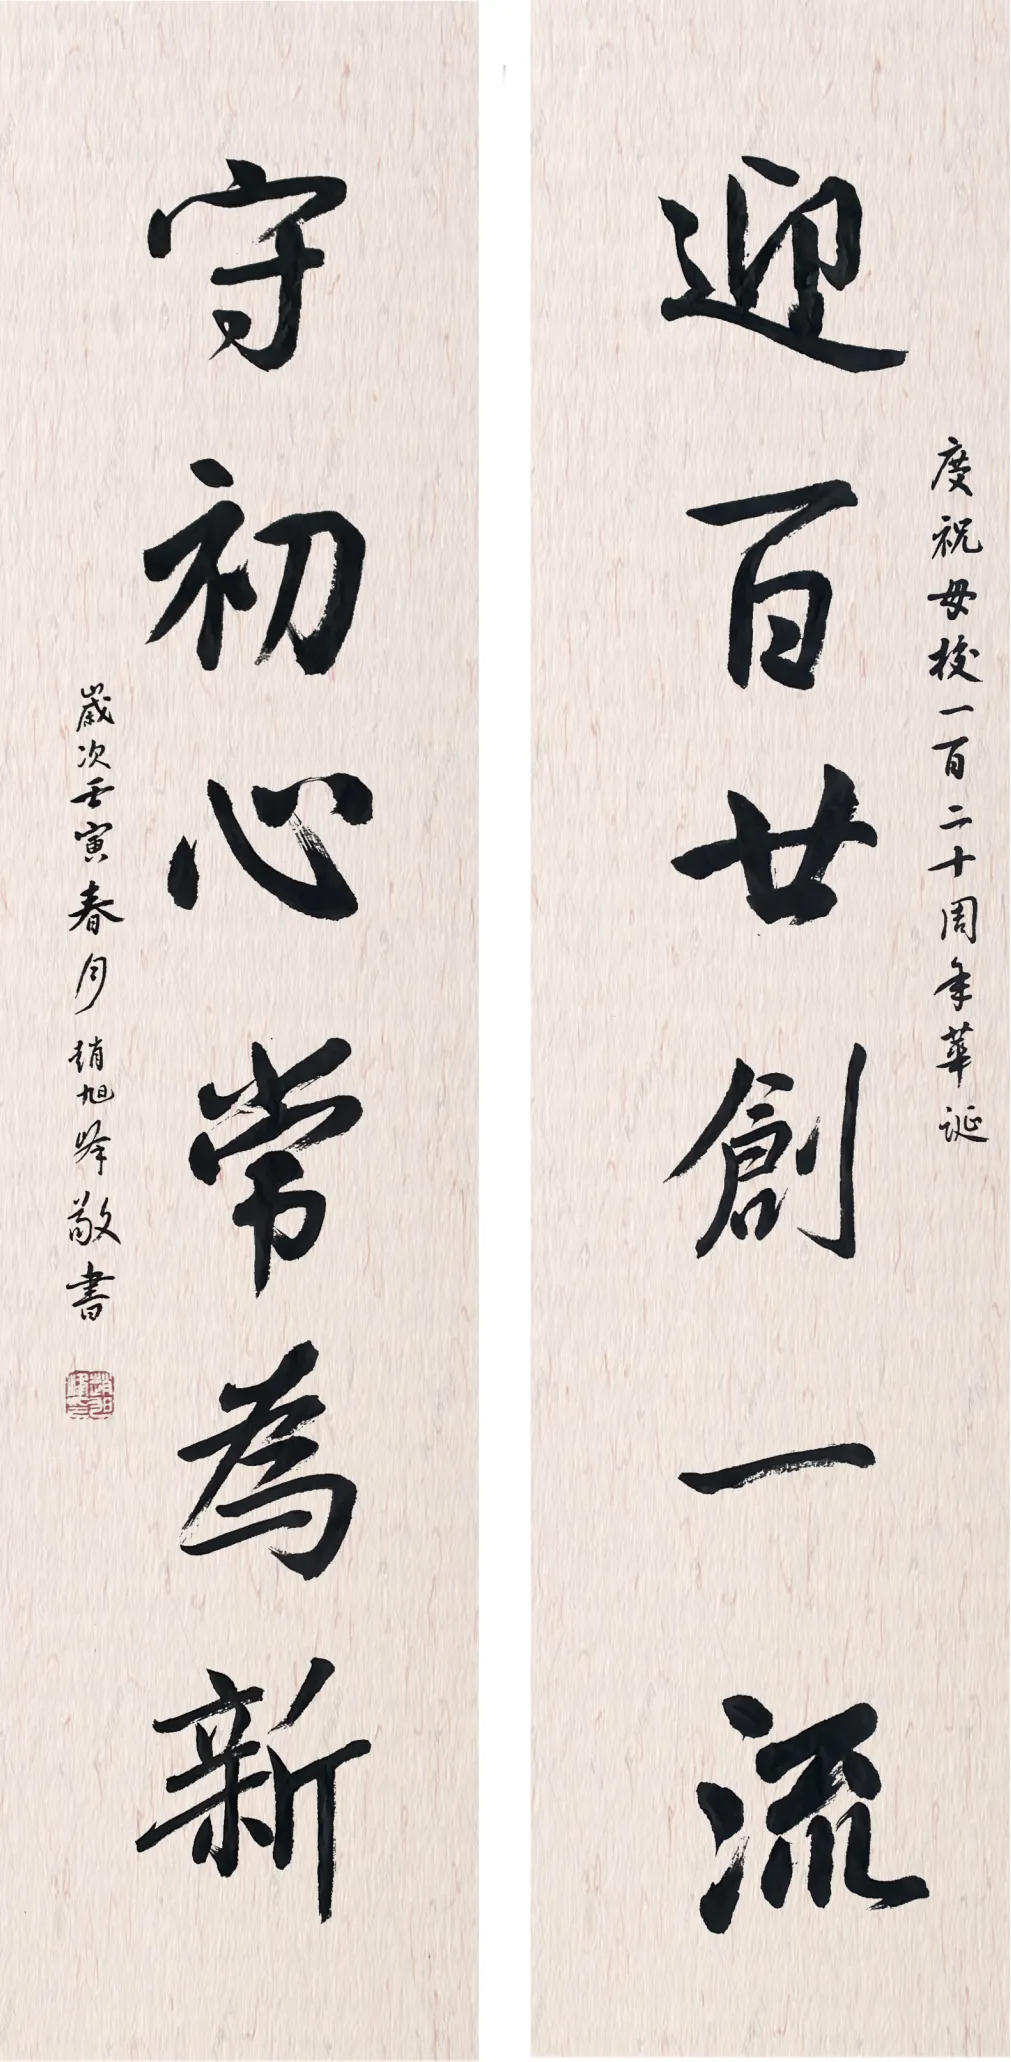 慶祝母校一百二十周年華誕
迎百廿創一流
守初心常為新
歲次壬寅春月趙旭峰敬書